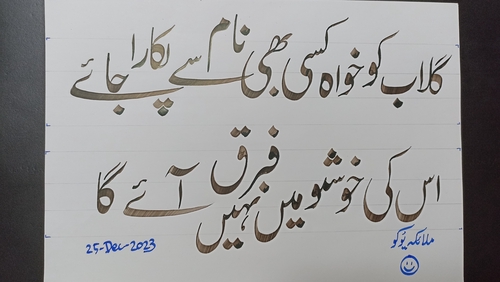 گلاب کو خواہ کسی بھی نام سے پکارا جائے
اس کی خوشبو میں فرق نہیں آئے گا
25-Dec-2023
ملائکہ یوکو